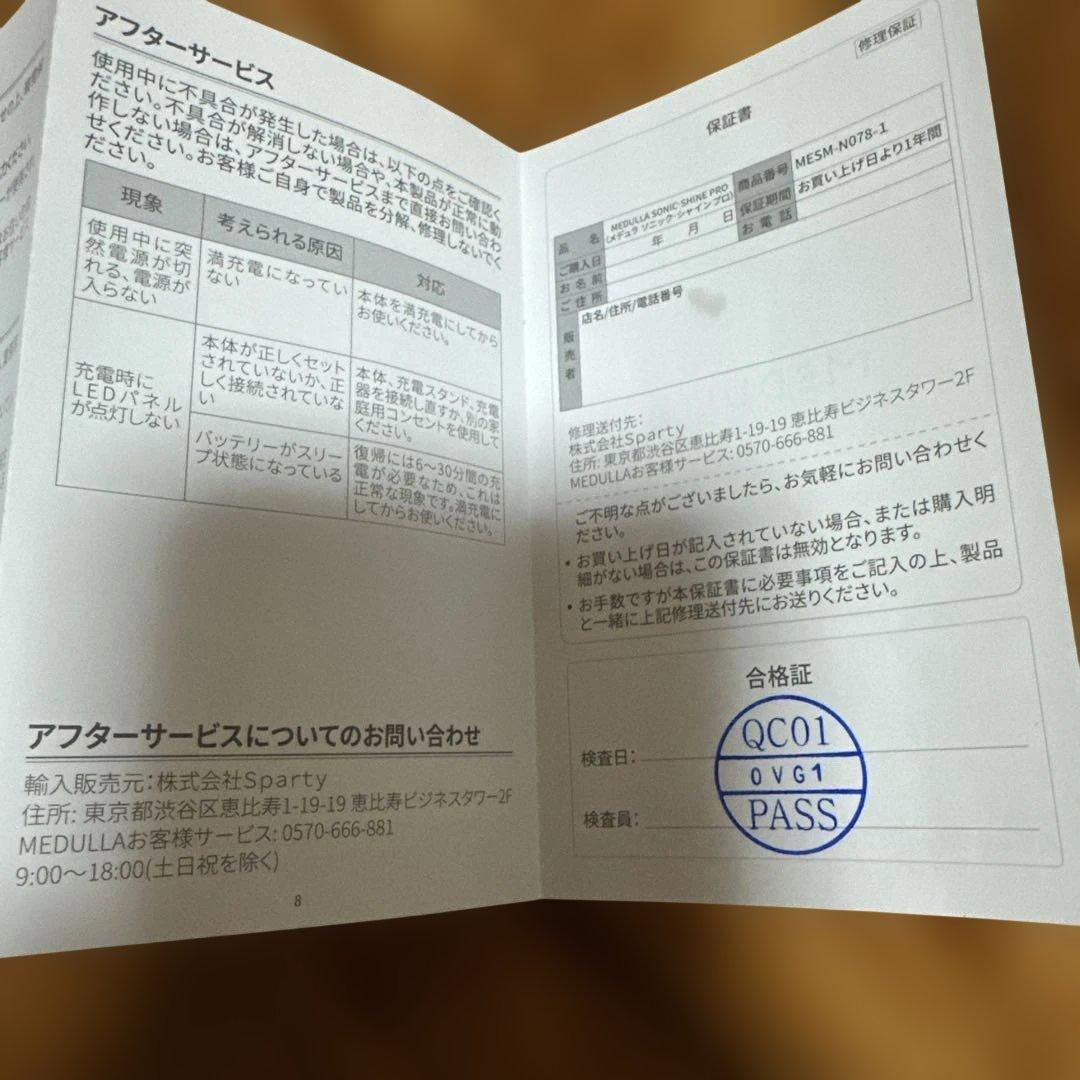 アフターサービス
使用中に不具合が発生した場合は、以下の点をご確認く
ださい。不具合が解消しない場合や、本製品が正常に動
作しない場合は、アフターサービスまで直接お問い合わ
せください。お客様ご自身で製品を分解、修理しないでく
ださい。
現象
考えられる原因
対応
使用中に突
然電源が切
れる、電源が
入らない
満充電になってい
ない
本体を満充電にしてから
お使いください。
充電時に
LEDパネル
が点灯しない
本体が正しくセット
されていないか、正
しく接続されていな
い
本体、充電スタンド、充電
器を接続し直すか、別の家
庭用コンセントを使用して
ください。
バッテリーがスリー
プ状態になっている
復帰には6~30分間の充
電が必要なため、これは
正常な現象です。満充電に
してからお使いください。
アフターサービスについてのお問い合わせ
輸入販売元:株式会社Sparty
住所: 東京都渋谷区恵比寿1-19-19 恵比寿ビジネスタワー2F
MEDULLAお客様サービス: 0570-666-881
9:00～18:00(土日祝を除く)
8
修理保証
保証書
品名
MEDULLA SONIC-SHINE PRO
(メデュラ ソニック-シャインプロ)
商品番号
MESM-N078-1
ご購入日
年 月 日
保証期間
お買い上げ日より1年間
お名前
お電話
ご住所
販売者
店名/住所/電話番号
修理送付先:
株式会社Sparty
住所: 東京都渋谷区恵比寿1-19-19 恵比寿ビジネスタワー2F
MEDULLAお客様サービス: 0570-666-881
ご不明な点がございましたら、お気軽にお問い合わせく
ださい。
• お買い上げ日が記入されていない場合、または購入明
細がない場合は、この保証書は無効となります。
• お手数ですが本保証書に必要事項をご記入の上、製品
と一緒に上記修理送付先にお送りください。
合格証
検査日:
検査員:
QC01
0VG1
PASS